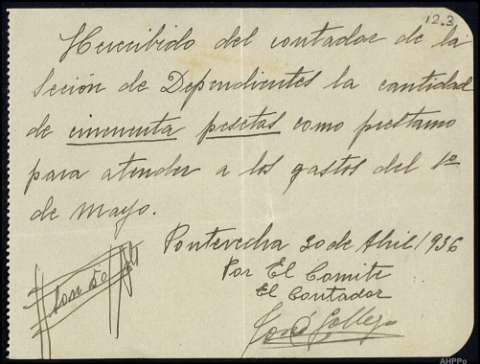 12.3
He recibido del contador de la
Seción de Dependientes la cantidad
de cincuenta pesetas como prestamo
para atender a los gastos del 1º
de Mayo.
Pontevedra 20 de Abril 1936
Por El Comite
El Contador
# Son 50 #
José Gallego
AHPPo